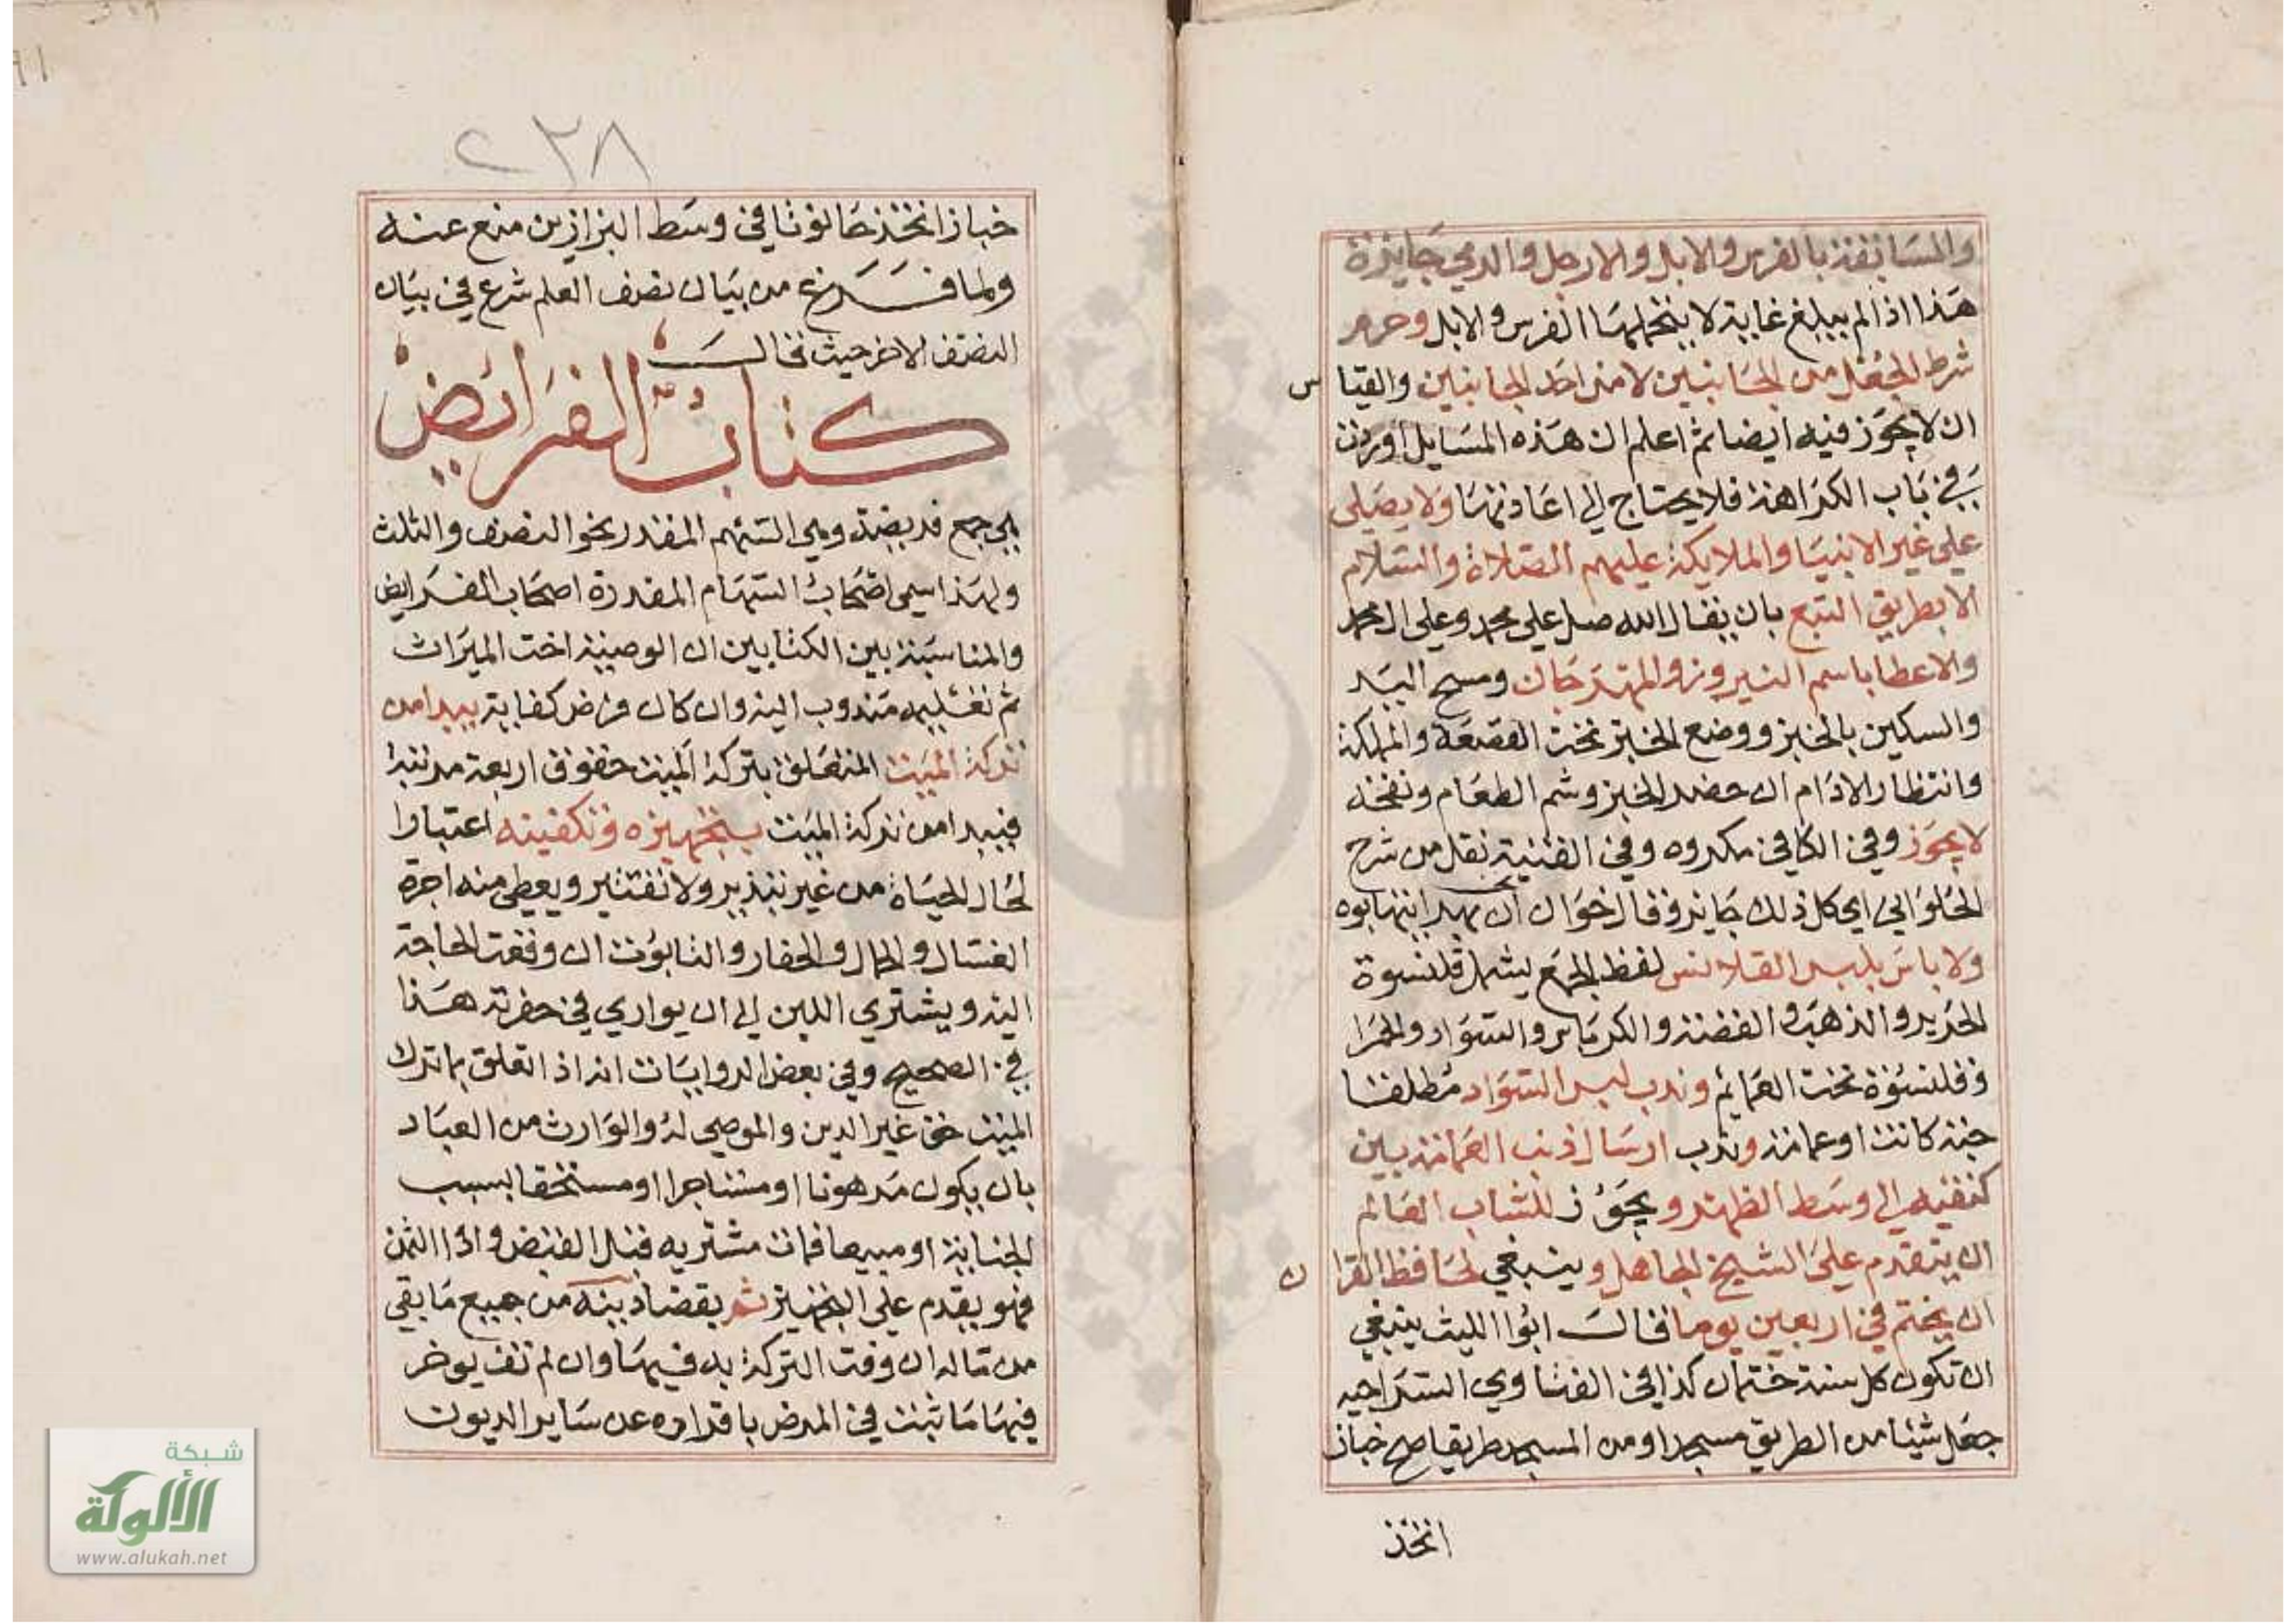 والمسابقة بالفرس والابل والارجل والرمي جايزة
هذا اذا لم يبلغ غاية لا يتحملها الفرس والابل وحرم
شرط الجعل من الجانبين لا من احد الجانبين والقياس
ان لا يجوز فيه ايضا ثم اعلم ان هذه المسايل اوردت
في باب الكراهة فلا يحتاج الى اعادتها ولا يصلى
على غير الانبيا والملايكة عليهم الصلاة والسلام
الا بطريق التبع بان يقال الله صل على محمد وعلى ال محمد
والاعطا باسم النيروز والمهرجان ومسح اليد
والسكين بالخبز ووضع الخبز تحت القصعة والمملكة
وانتظار الادام ان حضر الخبز وشم الطعام ونفخه
لا يجوز وفي الكافي مكروه وفي القنية نقل من شرح
الحلواني اي كل ذلك جايز وقال خوان ان
ولا باس بلبس القلانس لفظ الجمع يشمل قلنسوة
الحرير والذهب والفضة والكرباس والسواد والحمرا
وقلنسوة تحت العمايم وندب لبس السواد مطلقا
جبة كانت او عمامة وندب ارسال ذنب العمامة بين
كتفيه الى وسط الظهر ويجوز للشاب العالم
ان يتقدم على الشيخ الجاهل وينبغي لحافظ القران
ان يختم في اربعين يوما قال ابوا الليث ينبغي
ان تكون كل سنة ختمان كذا في الفتاوي السراجيه
جعل شيئا من الطريق مسجدا ومن المسجد طريقا صح خباز
اتخذ
٢٣٨
خباز اتخذ حانوتا في وسط البزازين منع عنه
ولما فرغ من بيان تصرف العلم شرع في بيان
التصرف الاخر حيث قال
كتاب الفرايض
هي جمع فريضة وهي السهم المقدر نحو النصف والثلث
ولهذا سمي اصحاب السهام المقدرة اصحاب الفرايض
والمناسبة بين الكتابين ان الوصية اخت الميراث
ثم تعليم مندوب اليه وان كان فرض كفاية يبدا من
تركة الميت المتعلق بتركة الميت حقوق اربعة مرتبة
فيبدا من تركة الميت بتجهيزه وتكفينه اعتبارا
لحال الحياة من غير تبذير ولا تقتير ويعطي منه اجرة
الغسال والحمال والحفار والتابوت ان وقعت الحاجة
اليه ويشتري اللبن الى ان يواري في حفرته هذا
في الصحيح وفي بعض الروايات انه اذا تعلق بما ترك
الميت حق غير الدين والموصي له والوارث من العباد
بان يكون مرهونا او مستاجرا او مستحقا بسبب
الجناية او مبيعا فمات مشتريه قبل القبض واداا الثمن
فهو يقدم على التجهيز ثم بقضا دينه من جميع ما بقي
من ماله ان وفت التركة به فبها وان لم تف يوخر
فيها ما ثبت في المرض باقراره عن ساير الديون
شبكة
الألوكة
www.alukah.net